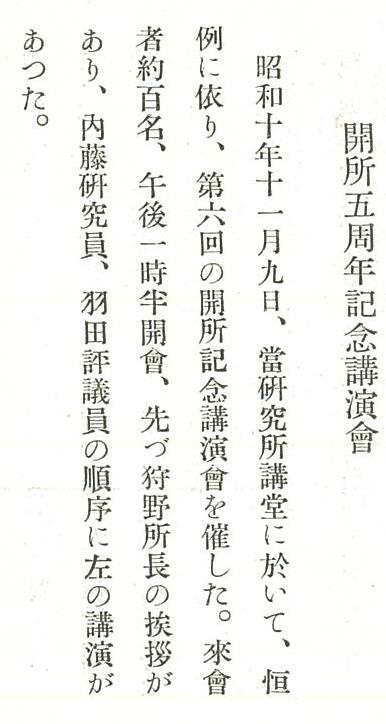 開所五周年記念講演會
昭和十年十一月九日、當硏究所講堂に於いて、恒
例に依り、第六回の開所記念講演會を催した。來會
者約百名、午後一時半開會、先づ狩野所長の挨拶が
あり、內藤硏究員、羽田評議員の順序に左の講演が
あつた。